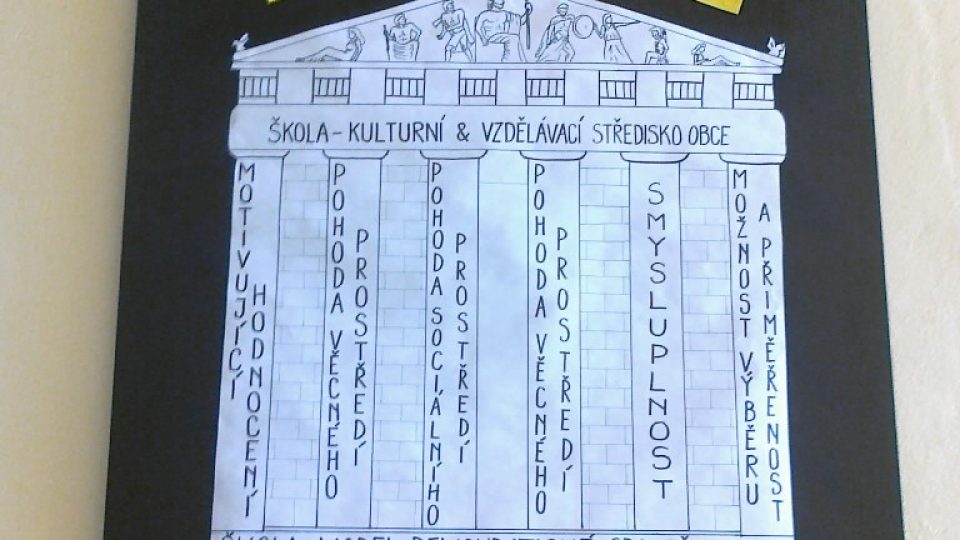 ŠKOLA - KULTURNÍ & VZDĚLÁVACÍ STŘEDISKO OBCE
MOTIVUJÍCÍ
HODNOCENÍ
POHODA VĚCNÉHO
PROSTŘEDÍ
POHODA SOCIÁLNÍHO
PROSTŘEDÍ
POHODA VĚCNÉHO
PROSTŘEDÍ
SMYSLUPLNOST
MOŽNOST VÝBĚRU
A PŘIMĚŘENOST